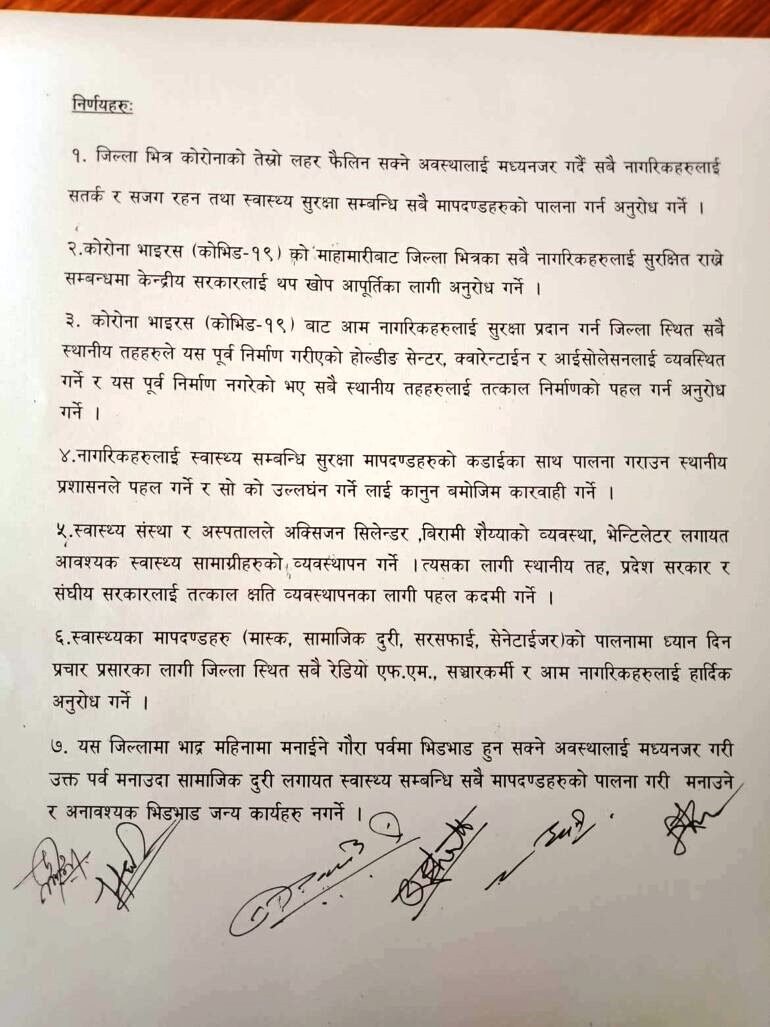 निर्णयहरुः
१. जिल्ला भित्र कोरोनाको तेस्रो लहर फैलिन सक्ने अवस्थालाई मध्यनजर गर्दै सबै नागरिकहरुलाई
सतर्क र सजग रहन तथा स्वास्थ्य सुरक्षा सम्बन्धि सबै मापदण्डहरुको पालना गर्न अनुरोध गर्ने ।
२.कोरोना भाइरस (कोभिड-१९) को माहामारीबाट जिल्ला भित्रका सबै नागरिकहरुलाई सुरक्षित राख्ने
सम्बन्धमा केन्द्रीय सरकारलाई थप खोप आपूर्तिका लागी अनुरोध गर्ने ।
३. कोरोना भाइरस (कोभिड-१९) बाट आम नागरिकहरुलाई सुरक्षा प्रदान गर्न जिल्ला स्थित सबै
स्थानीय तहहरुले यस पूर्व निर्माण गरीएको होल्डीङ सेन्टर, क्वारेन्टाईन र आईसोलेसनलाई व्यवस्थित
गर्ने र यस पूर्व निर्माण नगरेको भए सबै स्थानीय तहहरुलाई तत्काल निर्माणको पहल गर्न अनुरोध
गर्ने ।
४.नागरिकहरुलाई स्वास्थ्य सम्बन्धि सुरक्षा मापदण्डहरुको कडाईका साथ पालना गराउन स्थानीय
प्रशासनले पहल गर्ने र सो को उल्लघंन गर्ने लाई कानुन बमोजिम कारवाही गर्ने ।
५.स्वास्थ्य संस्था र अस्पतालले अक्सिजन सिलेन्डर ,बिरामी शैय्याको व्यवस्था, भेन्टिलेटर लगायत
आवश्यक स्वास्थ्य सामाग्रीहरुको व्यवस्थापन गर्ने ।त्यसका लागी स्थानीय तह, प्रदेश सरकार र
संघीय सरकारलाई तत्काल क्षति व्यवस्थापनका लागी पहल कदमी गर्ने ।
६.स्वास्थ्यका मापदण्डहरु (मास्क, सामाजिक दुरी, सरसफाई, सेनेटाईजर)को पालनामा ध्यान दिन
प्रचार प्रसारका लागी जिल्ला स्थित सबै रेडियो एफ.एम., सञ्चारकर्मी र आम नागरिकहरुलाई हार्दिक
अनुरोध गर्ने ।
७. यस जिल्लामा भाद्र महिनामा मनाईने गौरा पर्वमा भिडभाड हुन सक्ने अवस्थालाई मध्यनजर गरी
उक्त पर्व मनाउदा सामाजिक दुरी लगायत स्वास्थ्य सम्बन्धि सबै मापदण्डहरुको पालना गरी मनाउने
र अनावश्यक भिडभाड जन्य कार्यहरु नगर्ने ।